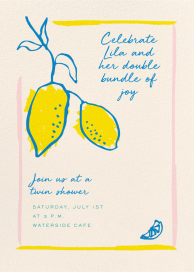 Celebrate
Lila and
her double
bundle of
joy
Join us at a
twin shower
SATURDAY, JULY 1ST
AT 3 P.M.
WATERSIDE CAFE